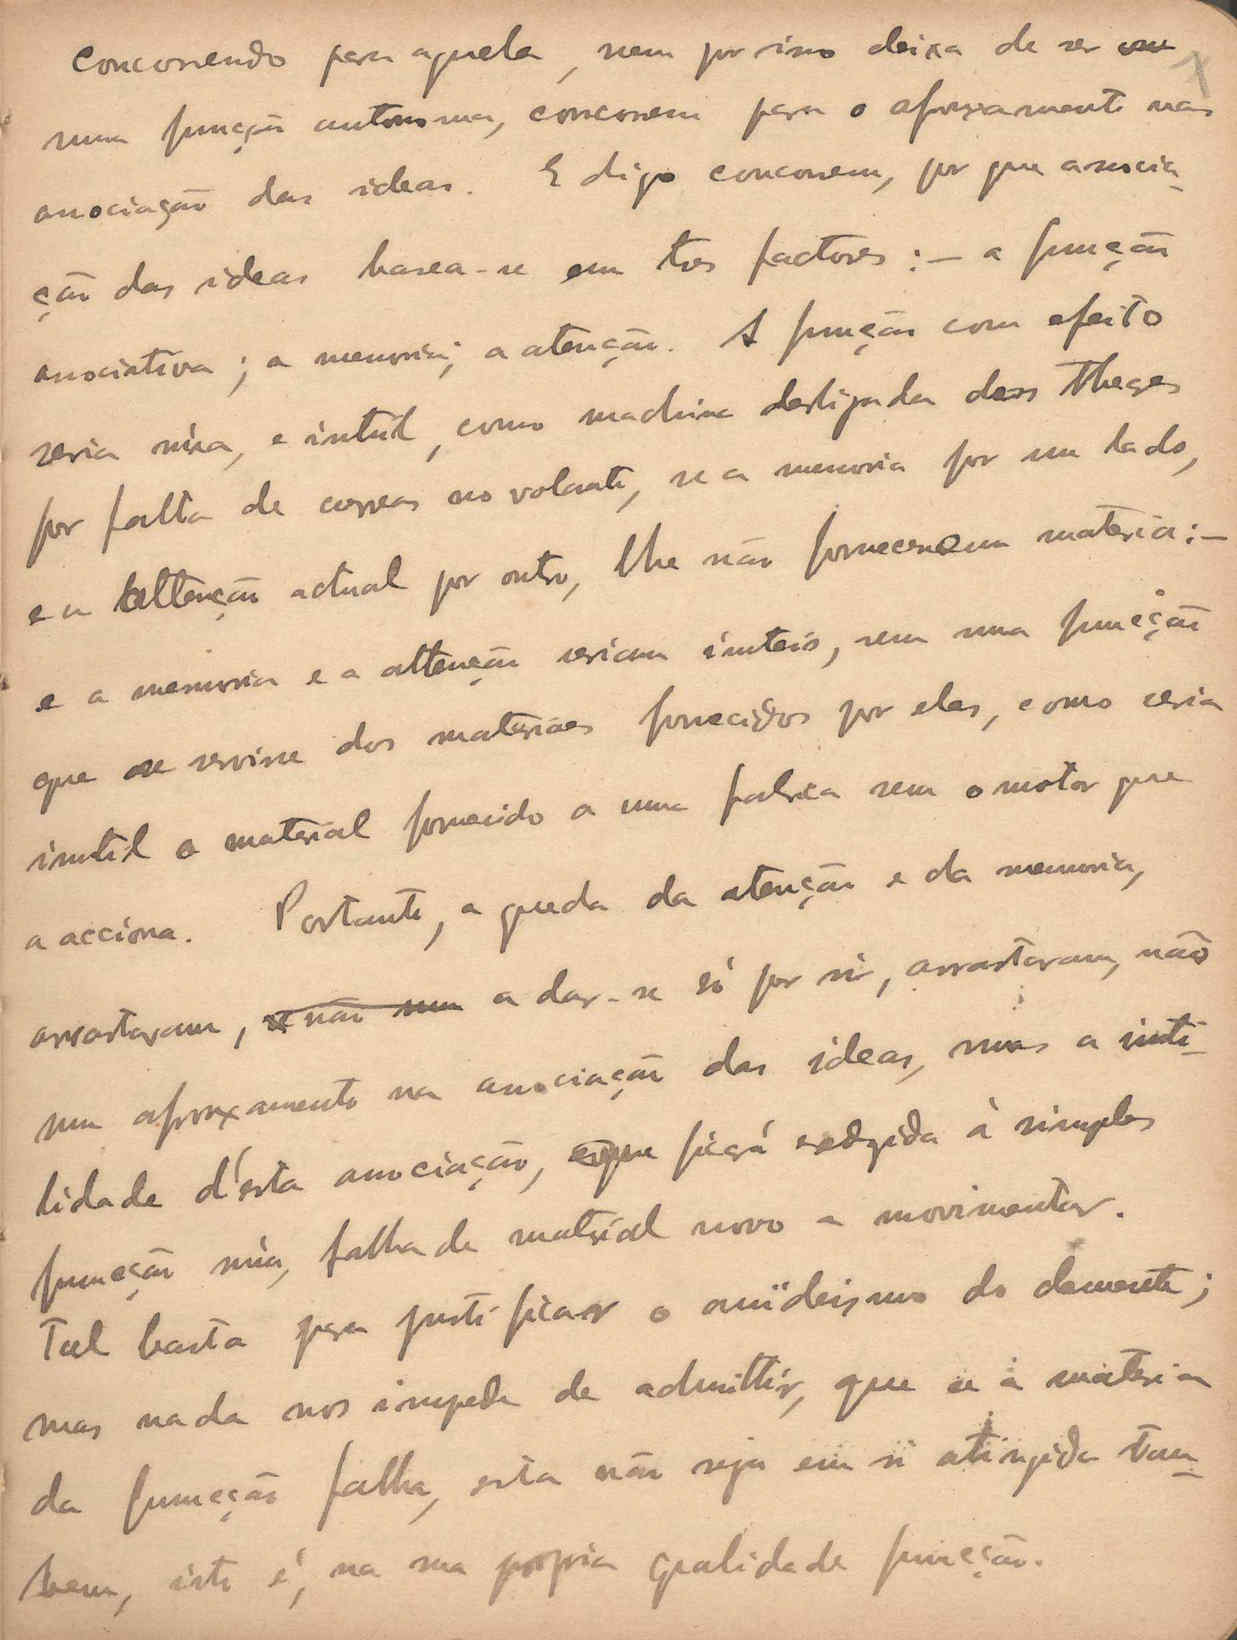 concorrendo para aquela, nem por isso deixa de ser
uma funcção autonoma, concorrem para o afrouxamento nas
associação das ideas. E digo concorrem, por que associa-
ção das ideas basea-se em tres factores:— a funcção
associativa; a memoria; a atenção. A funcção com efeito
seria núa, e inutil, como machina desligada
por falta de correas no volante, se a memoria por um lado,
e a attenção actual por outro, lhe não fornecerem materia:—
e a memoria e a attenção seriam inuteis, sem uma funcção
que se servisse dos materiaes fornecidos por elas, como seria
inutil o material fornecido a uma fabrica sem o motor que
a acciona. Portanto, a queda da atenção e da memoria,
arrastaram, e não um a dar-se só por si, arrastaram, não
um afrouxamento na associação das ideas, mas a inuti-
lidade d'esta associação, que ficará redzida à simples
funcção núa, falha de material novo a movimentar.
Tal basta para justificar o do demente;
mas nada nos impede de admittir, que se a materia
da funcção falha, esta não seja em si atingida tam-
bem, isto é, na sua propria qualidade funcção.